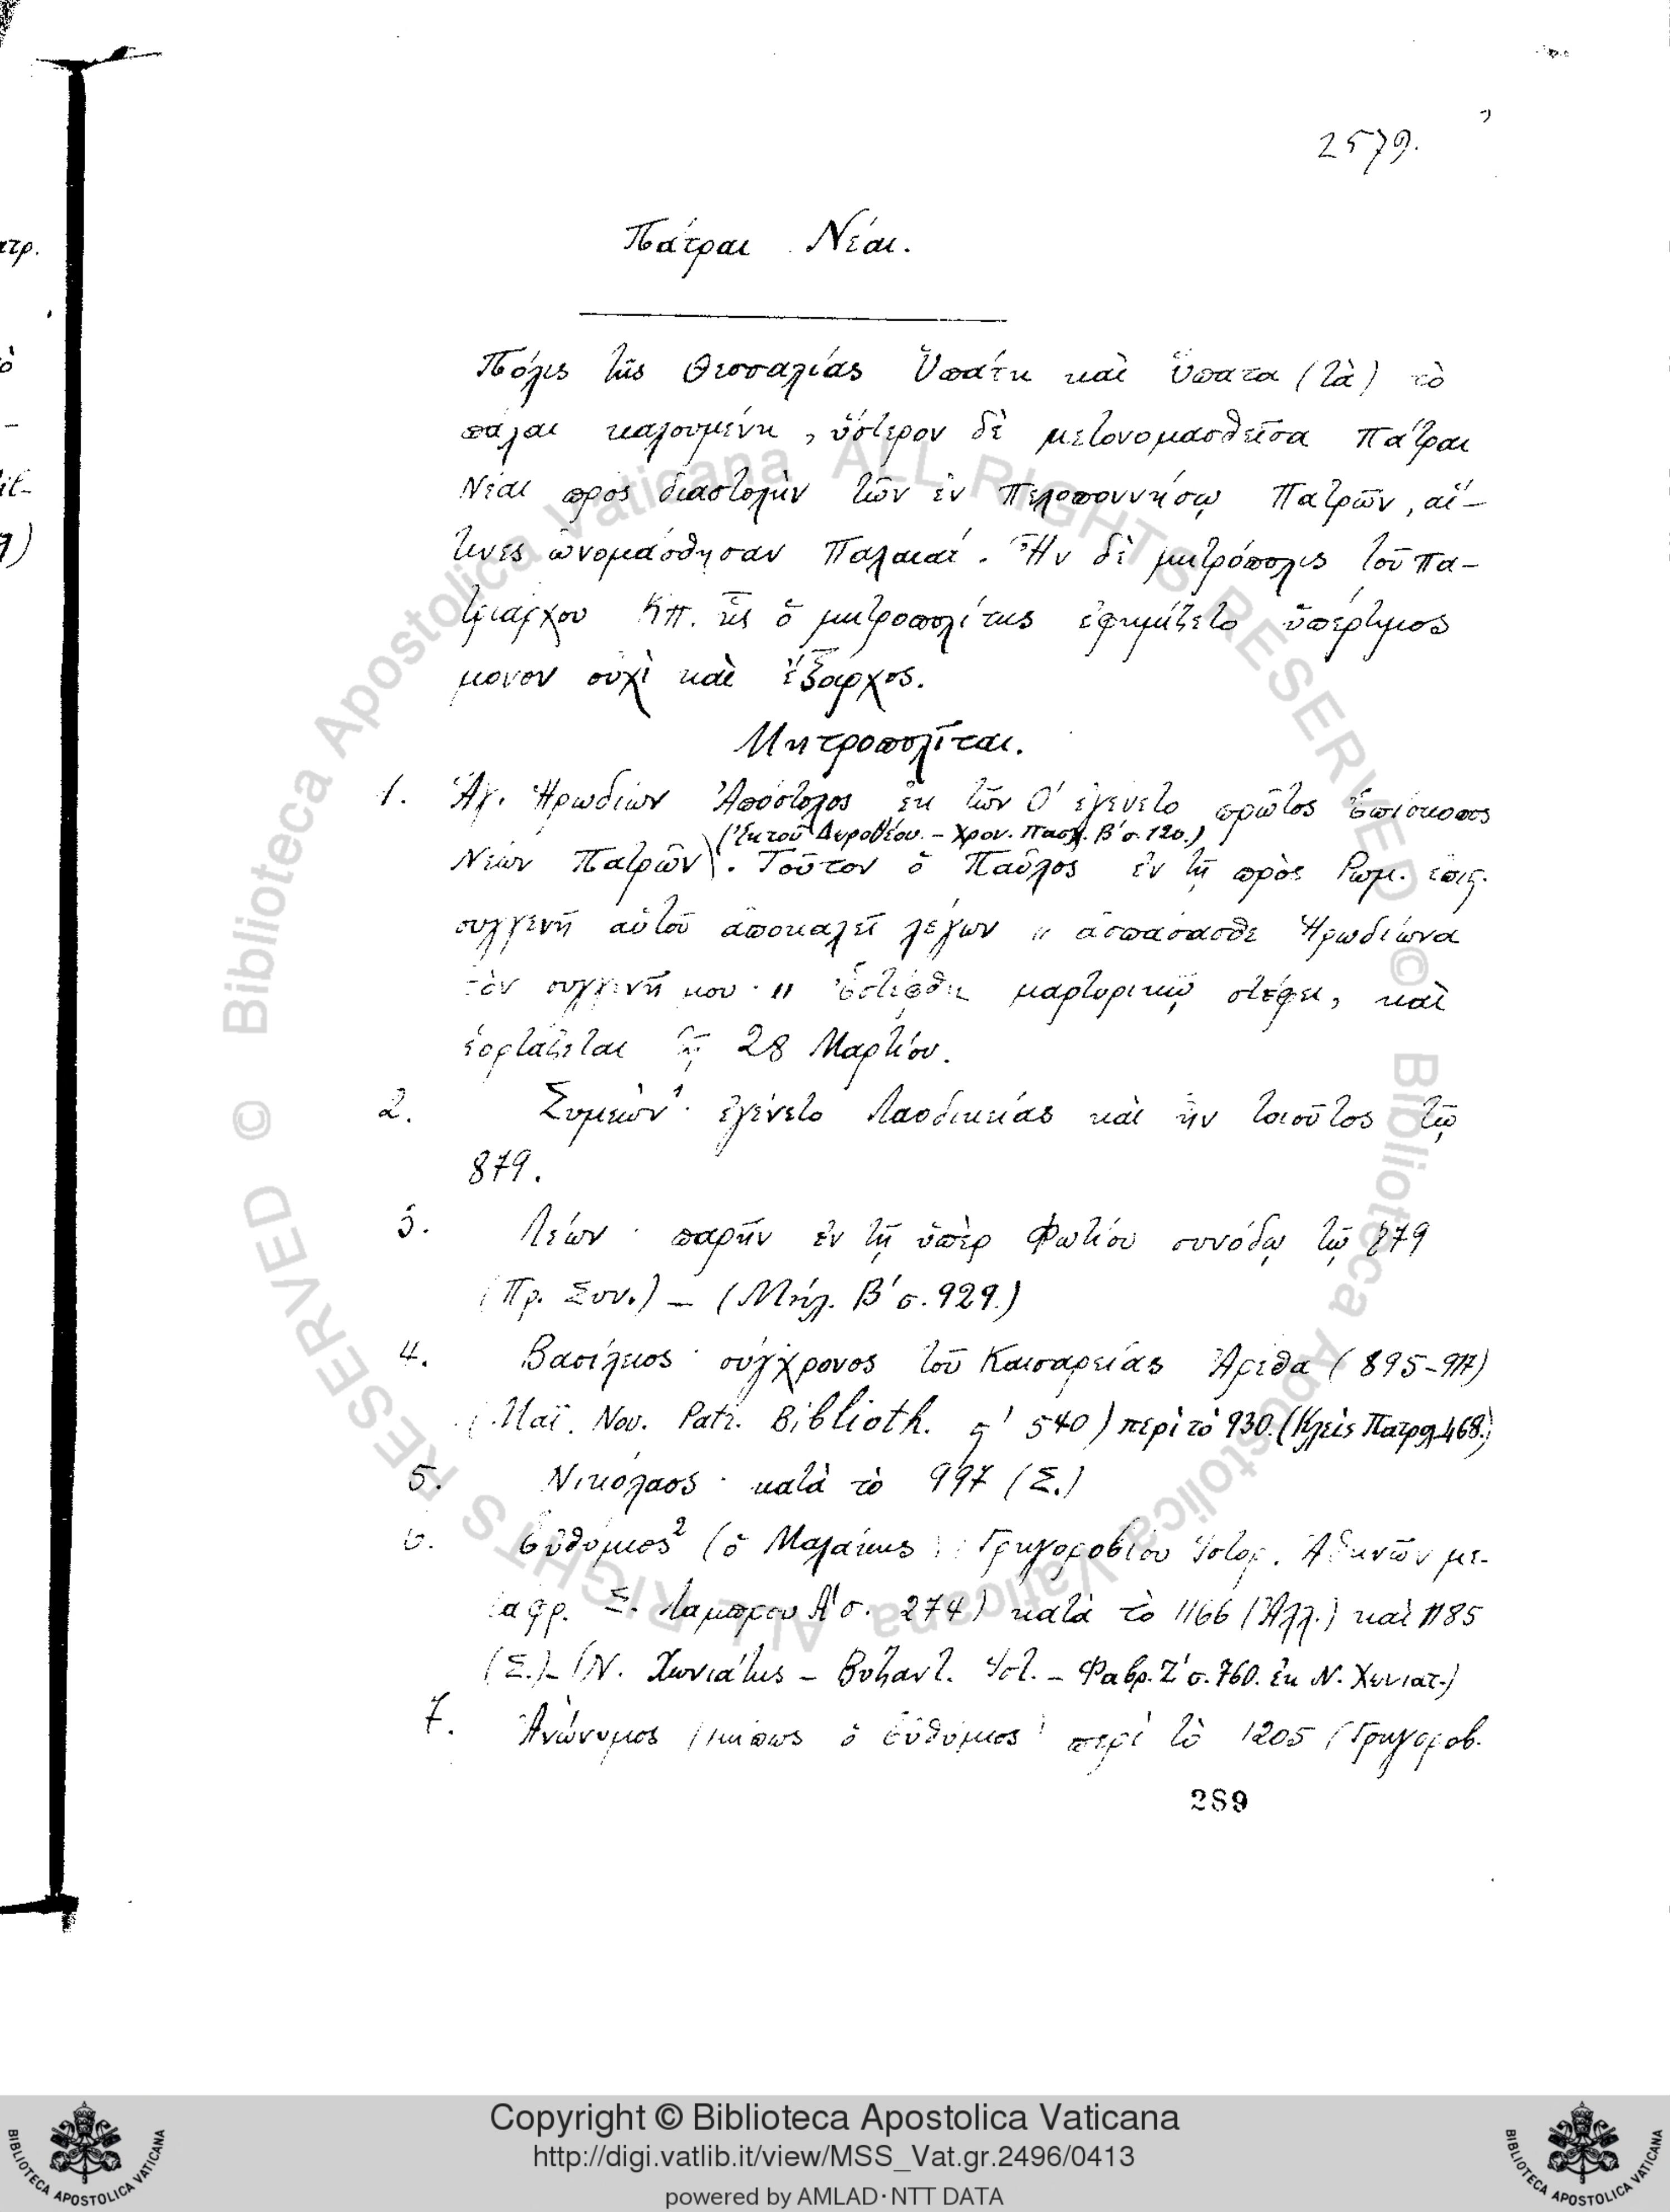 2579.
Πάτραι Νέαι.
Πόλις τῆς Θεσσαλίας Ὑπάτη καὶ Ὕπατα (τὰ) τὸ
πάλαι καλουμένη, ὕστερον δὲ μετονομασθεῖσα Πάτραι
Νέαι πρὸς διαστολὴν τῶν ἐν Πελοποννήσῳ Πατρῶν, αἵ-
τινες ὠνομάσθησαν Παλαιαί. Ἦν δὲ μητρόπολις τοῦ Πα-
τριάρχου Κπ. ἧς ὁ μητροπολίτης ἐφημίζετο ὑπέρτιμος
μονον οὐχὶ καὶ ἔξαρχος.
Μητροπολῖται.
1. Ἅγ. Ἡρωδίων Ἀπόστολος ἐκ τῶν Ο' ἐγένετο πρῶτος Ἐπίσκοπος
(Ἐκ τοῦ Δωροθέου. – Χρον. Πασχ. Β' σ. 120.)
Νέων Πατρῶν. Τοῦτον ὁ Παῦλος ἐν τῇ πρὸς Ρωμ. ἐπις.
συγγενῆ αὑτοῦ ἀποκαλεῖ λέγων " ἀσπάσασθε Ἡρωδίωνα
τὸν συγγενῆ μου· " Ἐστέφθη μαρτυρικῷ στέφει, καὶ
ἑορτάζεται τῇ 28 Μαρτίου.
2. Συμεὼν¹· ἐγένετο Λαοδικείας καὶ ἦν τοιοῦτος τῷ
879.
3. Λέων · παρῆν ἐν τῇ ὑπὲρ Φωτίου συνόδῳ τῷ 879
(Πρ. Συν.) – (Μήλ. Β' σ. 929.)
4. Βασίλειος · σύγχρονος τοῦ Καισαρείας Ἀρέθα (895-917)
(Μαϊ. Nov. Patr. Biblioth. ς' 540) περὶ τὸ 930. (Κλεὶς Πατρολ. 468.)
5. Νικόλαος · κατὰ τὸ 997 (Σ.)
6. Εὐθύμιος² (ὁ Μαλάκης) (Γρηγοροβίου Ἱστορ. Ἀθηνῶν με-
ταφρ. Σ. Λαμπρου Α' σ. 274) κατὰ τὸ 1166 (Ἀλλ.) καὶ 1185
(Σ.) – (Ν. Χωνιάτης – Βυζαντ. Ἱστ. – Φαβρ. Ζ' σ. 760. ἐκ Ν. Χωνιατ.)
7. Ἀνώνυμος (μήπως ὁ Εὐθύμιος) περὶ τὸ 1205 (Γρηγοροβ.
289
Copyright © Biblioteca Apostolica Vaticana
http://digi.vatlib.it/view/MSS_Vat.gr.2496/0413
powered by AMLAD·NTT DATA